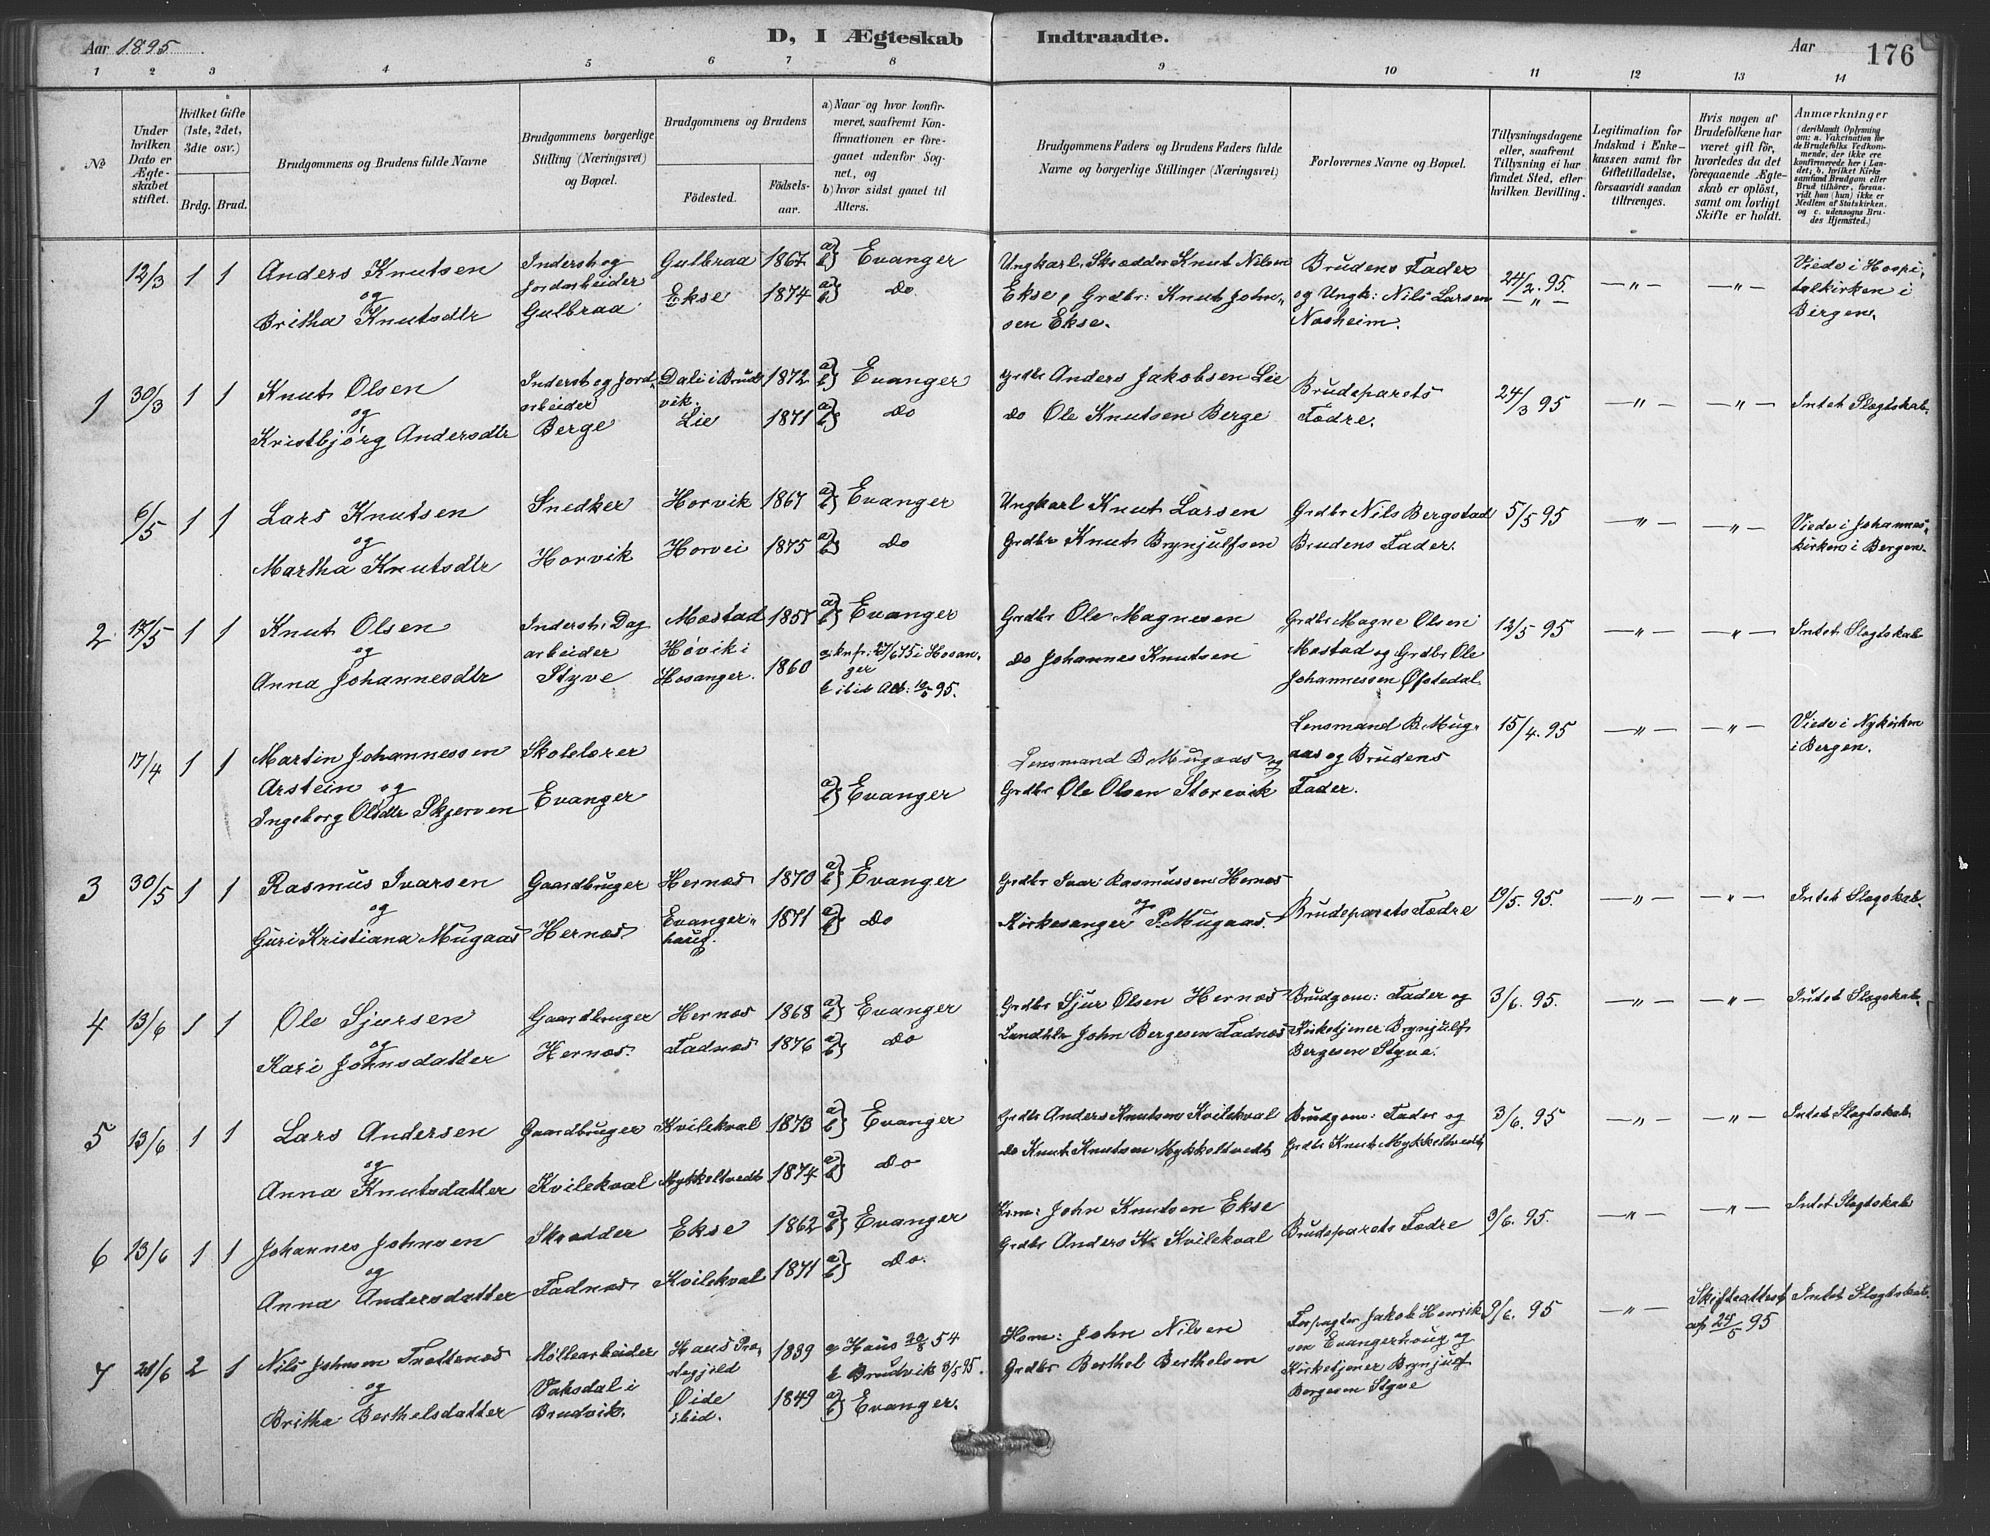 Aar 1895
D, I Ægteskab Indtraadte.
Aar 176
1 2 3 4 5 6 7 8 9 10 11 12 13 14
No
Under hvilken Dato er Ægteskabet stiftet.
Hvilket Gifte (1ste, 2det, 3die osv.)
Brdg. Brud.
Brudgommens og Brudens fulde Navne
Brudgommens borgerlige Stilling (Næringsvei) og Bopæl.
Brudgommens og Brudens
Fødested.
Fødselsaar.
a) Naar og hvor konfirmeret, saafremt Konfirmationen er foregaaet udenfor Sognet, og
b) hvor sidst gaaet til Alters.
Brudgommens Faders og Brudens Faders fulde Navne og borgerlige Stillinger (Næringsvei)
Forlovernes Navne og Bopæl.
Tillysningsdagene eller, saafremt Tillysning ei har fundet Sted, efter hvilken Bevilling.
Legitimation for Indskud i Enkekassen samt for Giftetilladelse, forsaavidt saadan tiltrænges.
Hvis nogen af Brudefolkene har været gift før, hvorledes da det foregaaende Ægteskab er opløst, samt om lovligt Skifte er holdt.
Anmærkninger
(deriblandt Oplysning om: a. Vakcination for de Brudefolks Vedkommende, der ikke ere konfirmerede her i Landet; b. hvilket Kirkesamfund Brudgom eller Brud tilhører, forsaavidt han (hun) ikke er Medlem af Statskirken, og c. udensogns Brudes Hjemsted.)
12/3 1 1
Anders Knutsen
og
Britha Knutsdtr
Inderst og
Jordarbeider
Gulbraa
Gulbraa 1867
Ekse 1874
a) b) Evanger
a) b) do
Ungkarl, Skrædder Knut Nilsen
Ekse, Grdbr: Knut John-
sen Ekse.
Brudens Fader
og Ungk: Nils Larsen
Nosheim.
24/2. 95
— " —
— " —
— " —
Viede i Hospi-
talkirken i
Bergen.
1 30/3 1 1
Knut Olsen
og
Kristbjørg Andersdtr
Inderst og Jord-
arbeider
Berge
Dale i Brud-
vik. 1872
Lie 1871
a) b) Evanger
a) b) do
Grdbr Anders Jakobsen Lie
do Ole Knutsen Berge
Brudeparets
Fædre.
24/3 95
— " —
— " —
Intet Slægtskab.
6/5 1 1
Lars Knutsen
og
Martha Knutsdtr
Snedker
Horvik
Horvik 1867
Horvei 1875
a) b) Evanger
a) b) do
Ungkarl Knut Larsen
Grdbr Knut Brynjulfsen
Grdbr Nils Bergstad
Brudens Fader.
5/5 95
— " —
— " —
Viede i Johannes-
kirken i Bergen.
2 12/5 1 1
Knut Olsen
og
Anna Johannesdtr
Inderst. Dag
arbeider
Styve
Mostad 1857
Høvik i
Hosanger. 1860
a) b) Evanger
a knf: 27/6 75 i Hosan-
ger
Grdbr Ole Magnesen
do Johannes Knutsen
Grdbr Magne Olsen
Mostad og Grdbr Ole
Johannessen Øfstedal
12/5 95
— " —
— " —
Intet Slægtskab
17/4 1 1
Martin Johannessen
Arstein og
Ingeborg Olsdtr Skjerven
Skolelærer
Evanger
a) b) Evanger
Lensmand B. Mugaas og
Grdbr Ole Olsen Storevik
Lensmand B. Mug-
aas og Brudens
Fader.
15/4. 95
— " —
— " —
Viede i Nykirken
i Bergen.
3 30/5 1 1
Rasmus Ivarsen
og
Guri Kristiana Mugaas
Gaardbruger
Hernæs
Hernæs 1870
Evanger-
haug. 1871
a) b) Evanger
a) b) do
Grdbr Ivar Rasmussen Hernæs
og
Kirkesanger P. Mugaas.
Brudeparets Fædre
19/5. 95.
— " —
— " —
Intet Slægskab.
4 13/6 1 1
Ole Sjursen
og
Kari Johnsdatter
Gaardbruger
Hernæs
Hernæs 1868
Fadnæs 1876
a) b) Evanger
a) b) do
Grdbr Sjur Olsen Hernæs
Landhlr John Bergesen Fadnæs
Brudgom: Fader og
Kirketjener Brynjulf
Bergesen Styve.
3/6. 95.
— " —
— " —
Intet Slægskab.
5 13/6 1 1
Lars Andersen
og
Anna Knutsdatter
Gaardbruger
Kvilekval
Kvilekval 1873
Mykkeltvedt 1874
a) b) Evanger
a) b) do
Grdbr Anders Knutsen Kvilekval
do Knut Knutsen Mykkeltvedt
Brudgom: Fader og
Grdbr Knut Mykkeltvedt
3/6. 95
— " —
— " —
Intet Slægtskab
6 13/6 1 1
Johannes Johnsen
og
Anna Andersdatter
Skrædder
Fadnæs
Ekse 1862
Kvilekval 1871
a) b) Evanger
a) b) do.
Krm: John Knutsen Ekse
Grdbr Anders K. Kvilekval
Brudeparets Fædre
3/6. 95.
— " —
— " —
Intet Slægtskab
7 21/6 2 1
Nils Johnsen Trættenæs
og
Britha Berthelsdatter
Møllearbeider
Vaksdal i
Brudvik.
Haus Præ-
stegjeld 1839
Øide 1849
a Haus 20/8 54
b Brudvik 3/5 95.
a) b) Evanger.
Hsm: John Nilsen
Grdbr Berthel Berthelsen
Forpagter Jakob Henrik-
sen Evangerhoug og
Kirketjener Brynjulf
Bergesen Styve
9/6. 95
— " —
Skifteattest
af 25/5 95
Intet Slægtskab.